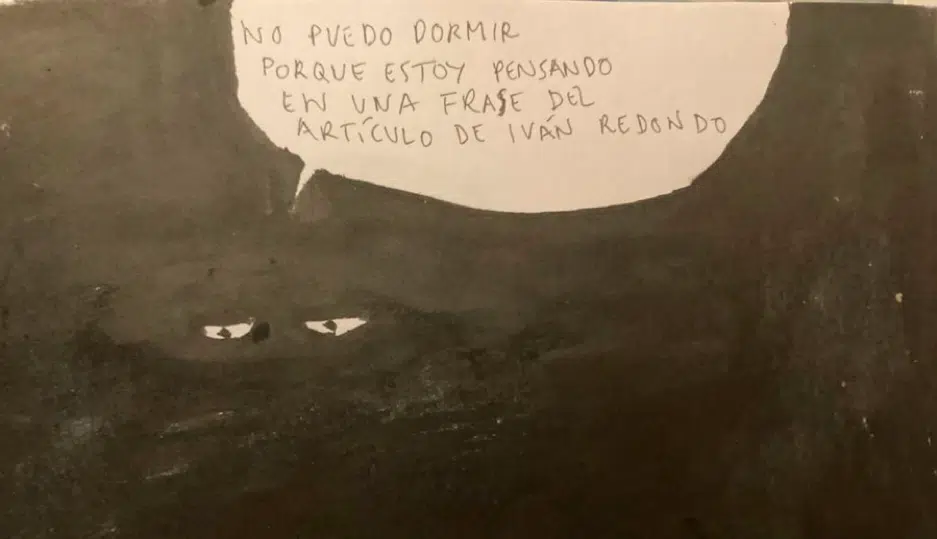 NO PUEDO DORMIR
PORQUE ESTOY PENSANDO
EN UNA FRASE DEL
ARTÍCULO DE IVÁN REDONDO